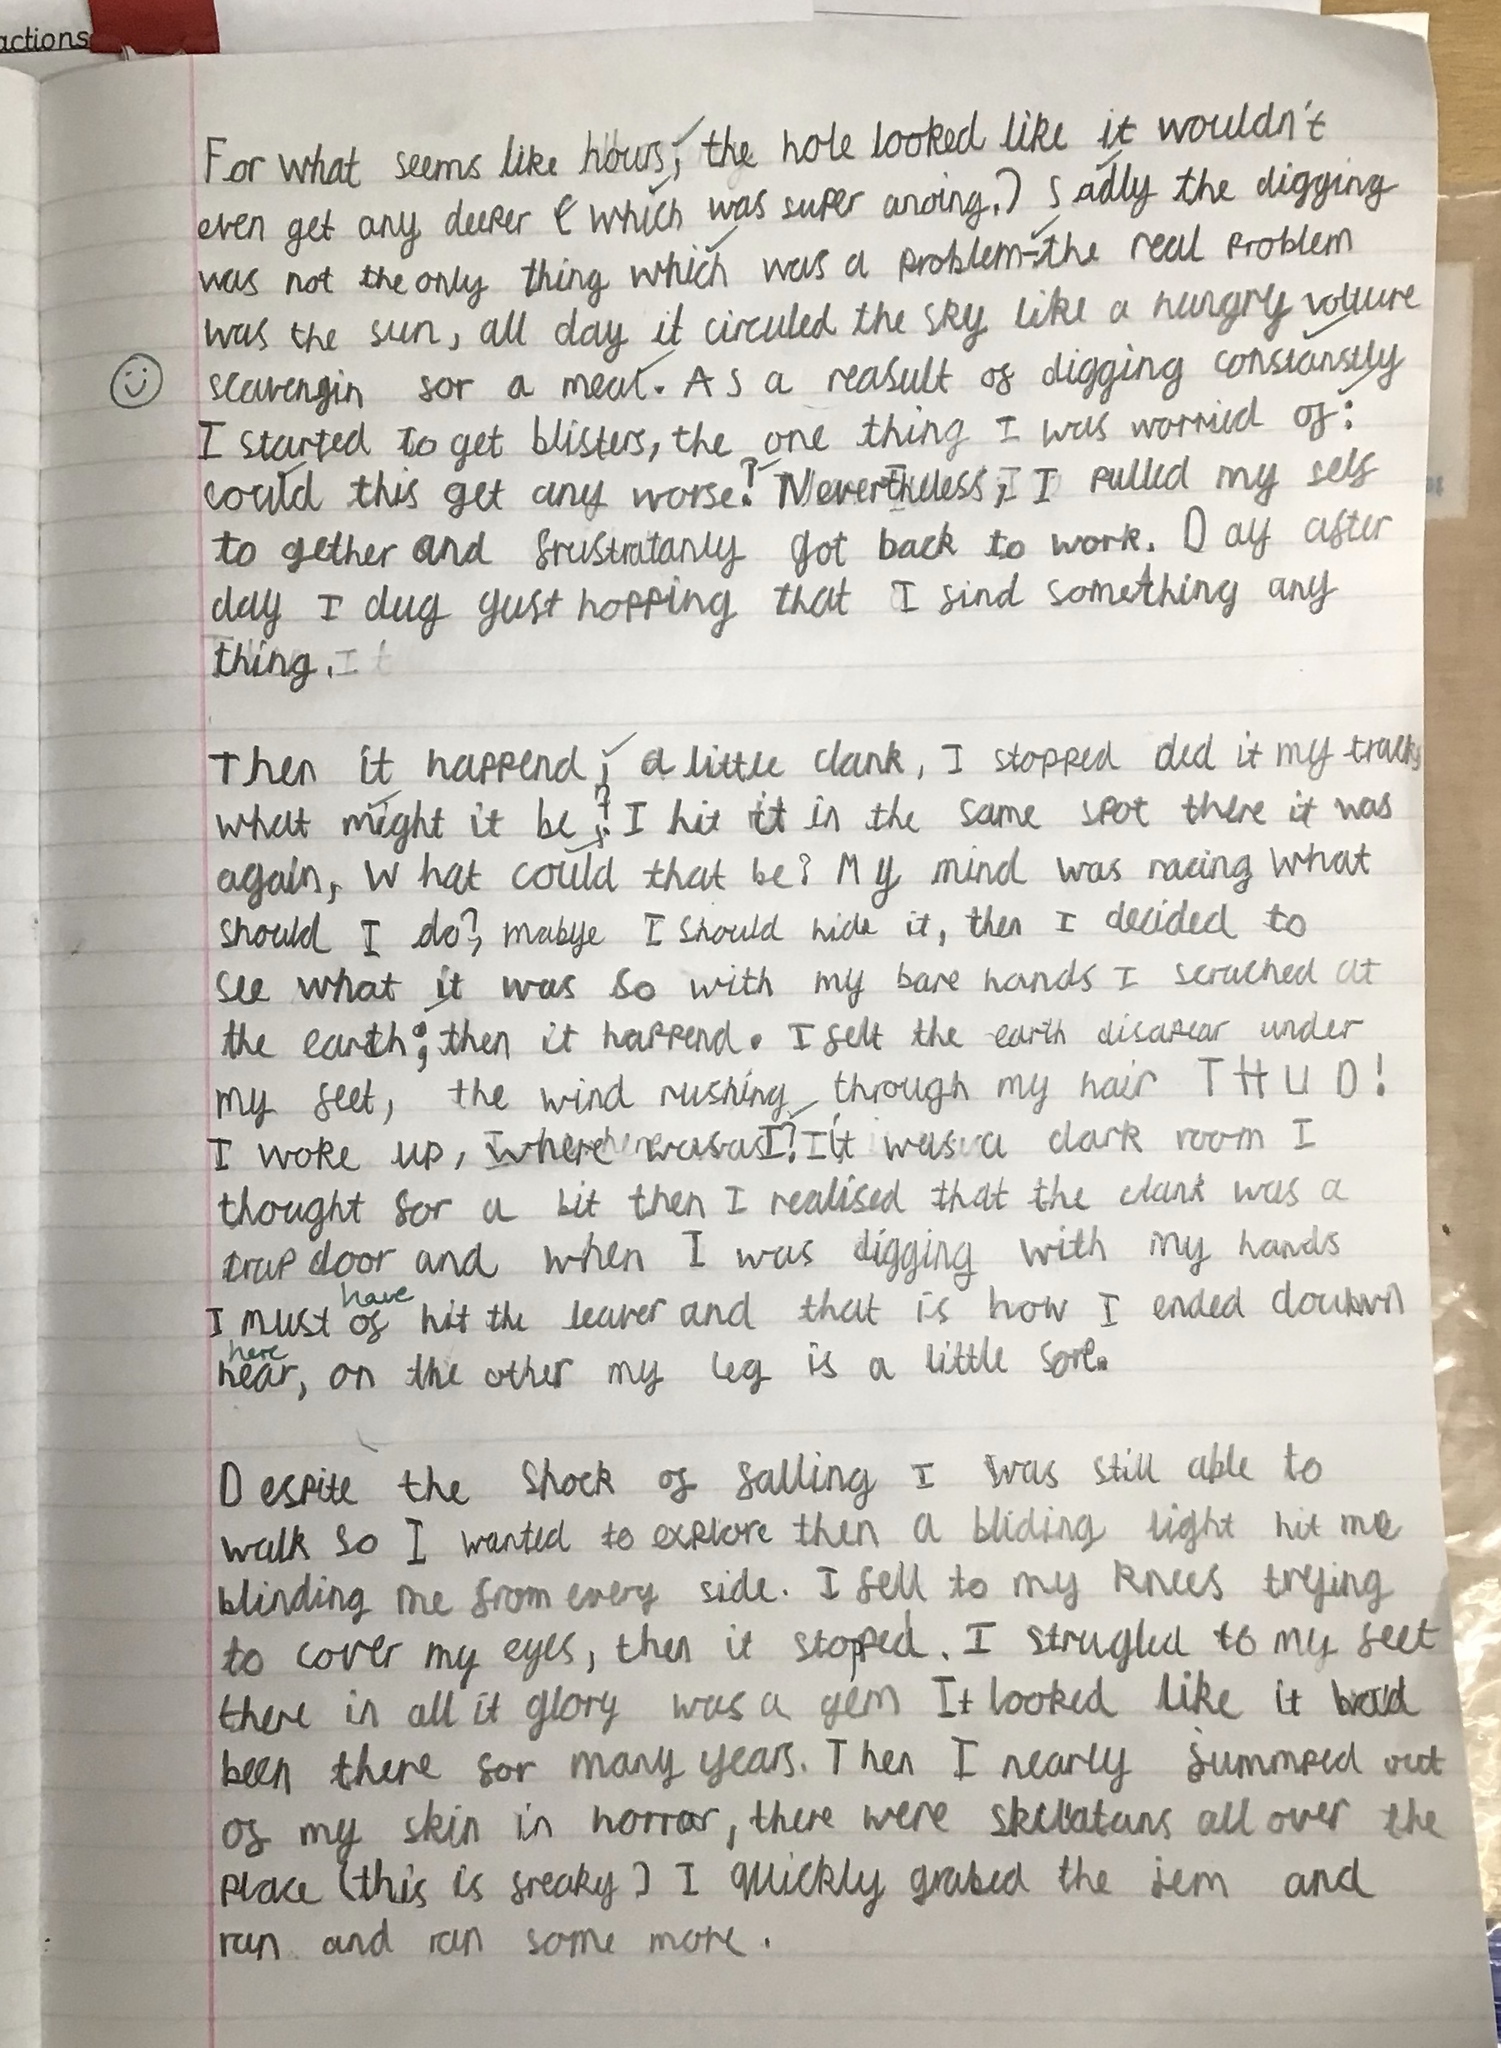 actions
For what seems like hours, the hole looked like it wouldn't
even get any deeper (which was super anoing.) Sadly the digging
was not the only thing which was a problem-the real problem
was the sun, all day it circuled the sky like a hungry volture
scavengin for a meal. As a reasult of digging constanstly
I started to get blisters, the one thing I was worried of:
could this get any worse? Nevertheless, I pulled my self
to gether and frustratanly got back to work. Day after
day I dug gust hopping that I find something any
thing.
Then it happend; a little clank, I stopped ded it my tracks
what might it be? I hit it in the same spot there it was
again, What could that be? My mind was racing what
should I do?, mabye I should hide it, then I decided to
see what it was so with my bare hands I scrached at
the earth; then it happend. I felt the earth disapear under
my feet, the wind rushing through my hair THUD!
I woke up, where was I? It was a dark room I
thought for a bit then I realised that the clank was a
trap door and when I was digging with my hands
have
I must of hit the leaver and that is how I ended down
here
hear, on the other my leg is a little sore.
Despite the shock of falling I was still able to
walk so I wanted to explore then a bliding light hit me
blinding me from every side. I fell to my knees trying
to cover my eyes, then it stopped. I strugled to my feet
there in all it glory was a gem It looked like it had
been there for many years. Then I nearly jummped out
of my skin in horror, there were skelatans all over the
place (this is freaky) I quickly grabed the jem and
ran and ran some more.